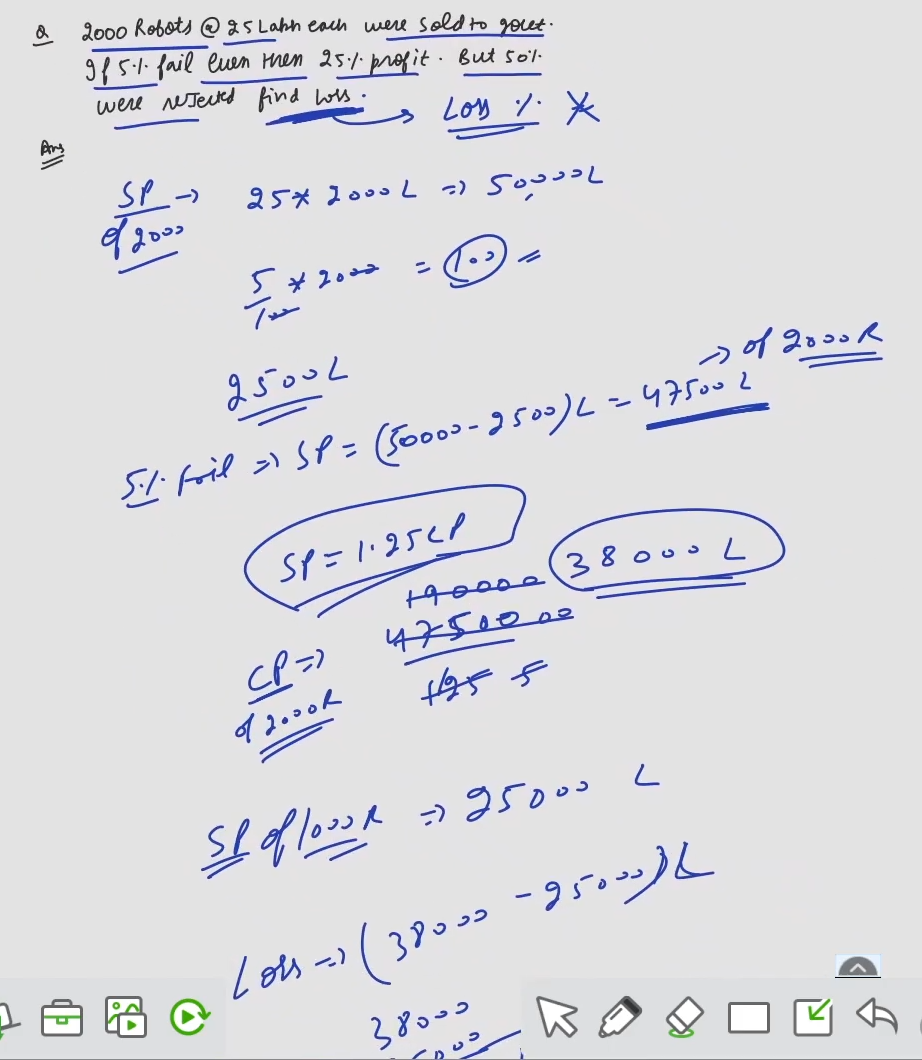 Q 2000 Robots @ 25 Lakh each were sold to govt.
If 5% fail even then 25% profit. But 50%
were rejected find loss. → Loss % *
Ans
SP → 25 * 2000 L => 50,000 L
of 2000
5/100 * 2000 = 100 =
2500 L
→ of 2000 R
5% fail => SP = (50000 - 2500) L = 47500 L
SP = 1.25 CP
190000 38000 L
CP => 4750000
of 2000 R 125 5
SP of 1000 R => 25000 L
Loss => (38000 - 25000) L
38000